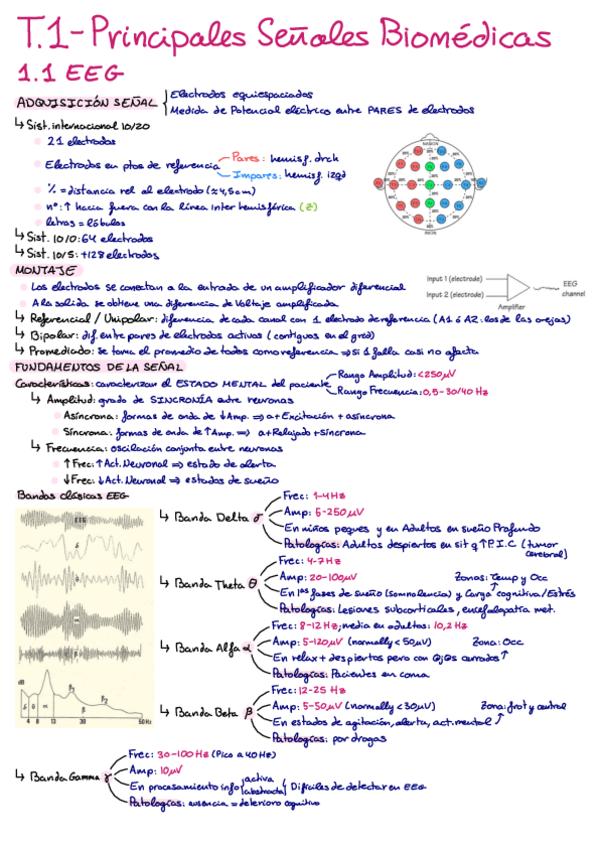 T.1-Principales Señales Biomédicas
1.1 EEG
ADQUISICIÓN SEÑAL { Electrodos equiespaciados
Medida de Potencial eléctrico entre PARES de electrodos
↳ Sist. internacional 10/20
21 electrodos
Electrodos en ptos de referencia
Pares: hemisf. drch
Impares: hemisf. izqd
% = distancia rel al electrodo (≈4,5cm)
nº: ↑ hacia fuera con la línea inter hemisférica (Z)
letras = lóbulos
↳ Sist. 10/0: 64 electrodos
↳ Sist. 10/5: +128 electrodos
NASION
INION
MONTAJE
Los electrodos se conectan a la entrada de un amplificador diferencial
A la salida se obtiene una diferencia de Voltaje amplificada
Input 1 (electrode)
Input 2 (electrode)
Amplifier
EEG channel
↳ Referencial / Unipolar: diferencia de cada canal con 1 electrodo de referencia (A1 ó A2: los de las orejas)
↳ Bipolar: dif. entre pares de electrodos activos (contiguos en el grid)
↳ Promediado: se toma el promedio de todos como referencia ⇒ si 1 falla casi no afecta
FUNDAMENTOS DE LA SEÑAL
Características: caracterizar el ESTADO MENTAL del paciente
Rango Amplitud: <250μV
Rango Frecuencia: 0,5-30/40 Hz
↳ Amplitud: grado de SINCRONÍA entre neuronas
Asíncrona: formas de onda de ↓Amp. ⇒ a + Excitación + asíncrona
Síncrona: formas de onda de ↑Amp. ⇒ a + Relajado + síncrona
↳ Frecuencia: oscilación conjunta entre neuronas
↑Frec: ↑Act. Neuronal ⇒ estado de alerta
↓Frec: ↓Act. Neuronal ⇒ estados de sueño
Bandas clásicas EEG
EEG
δ
θ
α
β
dB
δ θ α β₁ β₂
4 8 13 30 50 Hz
↳ Banda Delta σ
Frec: 1-4Hz
Amp: 5-250μV
En niños peques y en Adultos en sueño Profundo
Patologías: Adultos despiertos en sit q ↑P.I.C (tumor cerebral)
↳ Banda Theta θ
Frec: 4-7Hz
Amp: 20-100μV
Zonas: Temp y Occ
En 1ªs fases de sueño (somnolencia) y Carga cognitiva/Estrés
Patologías: Lesiones subcorticales, encefalopatía met.
↳ Banda Alfa α
Frec: 8-12Hz, media en adultos: 10,2 Hz
Amp: 5-120μV (normally <50μV)
Zona: Occ
En relax + despiertos pero con ojos cerrados ↑
Patologías: Pacientes en coma
↳ Banda Beta β
Frec: 12-25 Hz
Amp: 5-50μV (normally <30μV)
Zona: front y central
En estados de agitación, alerta, act. mental ↑
Patologías: por drogas
↳ Banda Gamma γ
Frec: 30-100Hz (Pico a 40Hz)
Amp: 10μV
En procesamiento info (activa abstracta) { Difíciles de detectar en EEG
Patologías: ausencia = deterioro cognitivo